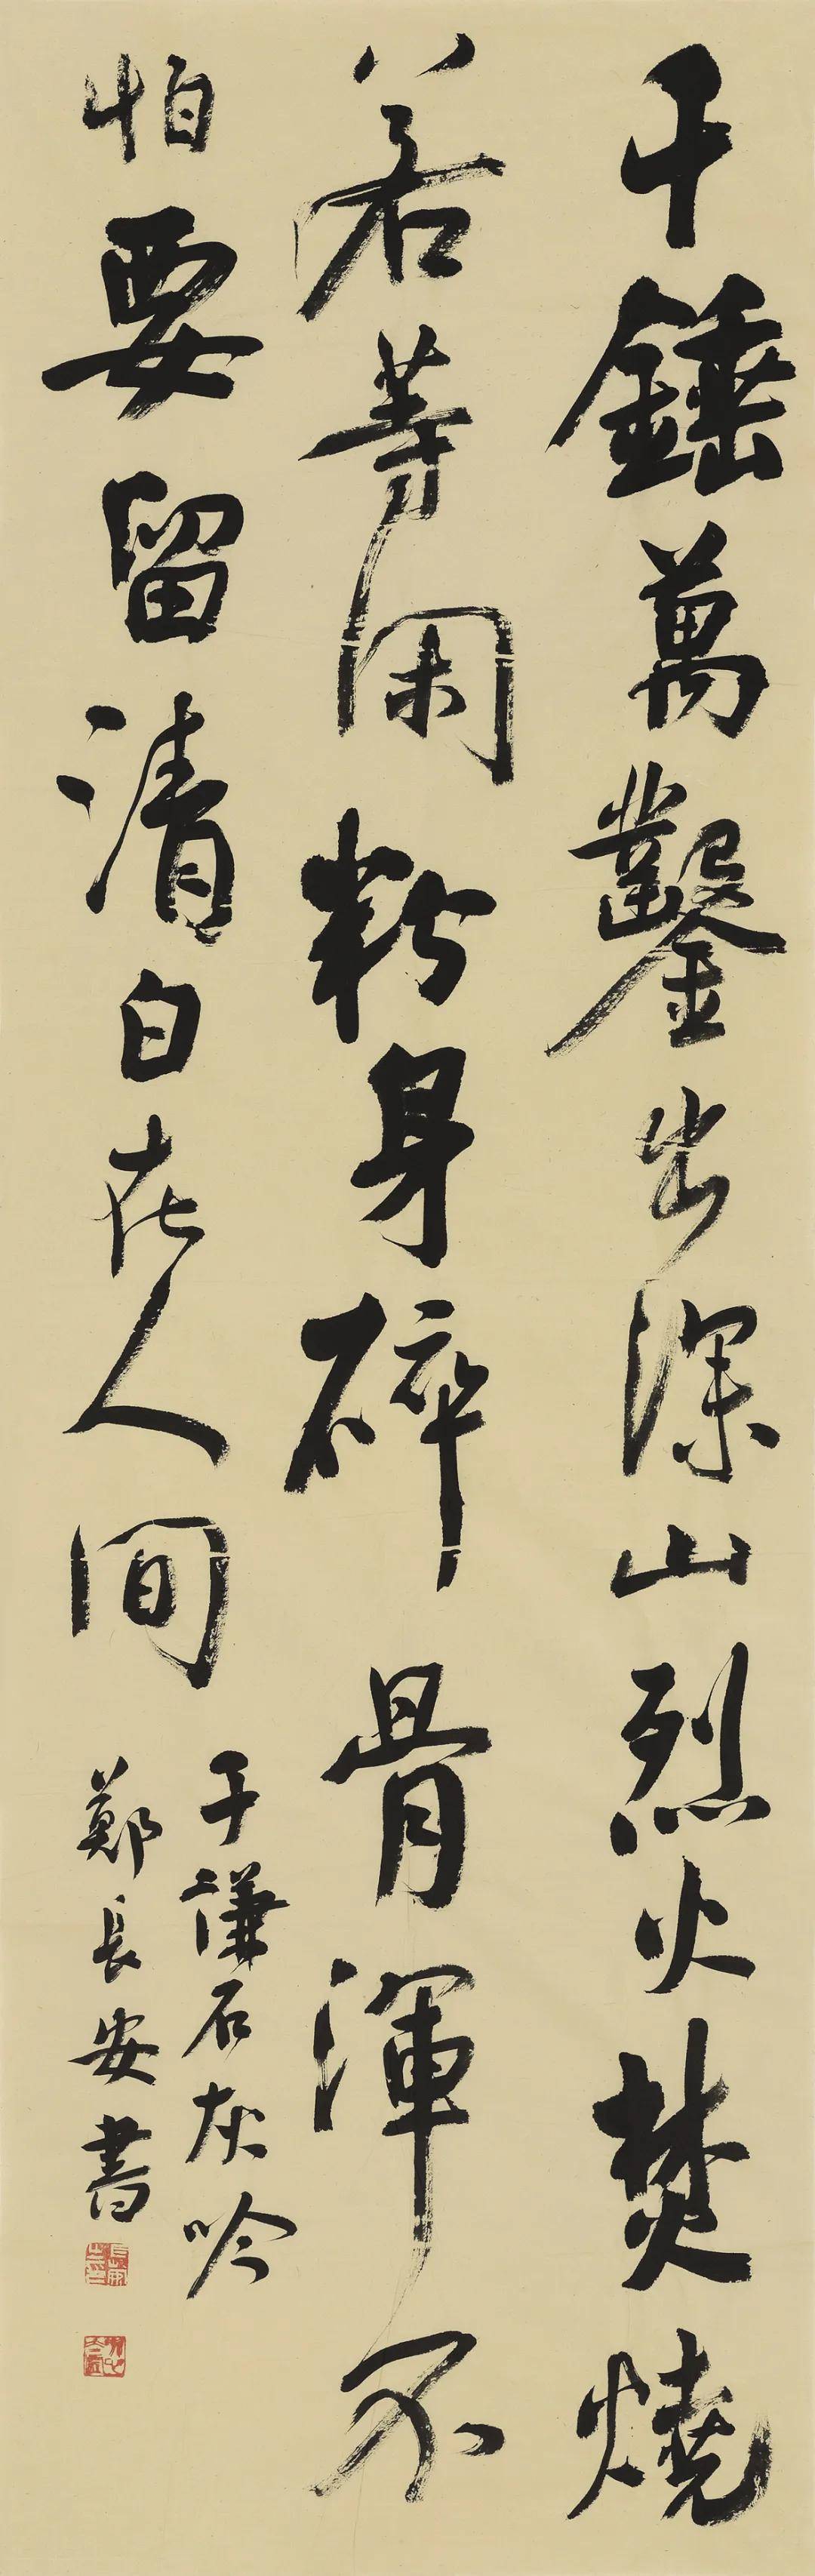 千錘萬鑿出深山烈火焚燒
若等閑粉身碎骨渾不
怕要留清白在人間
于謙石灰吟
鄭長安書